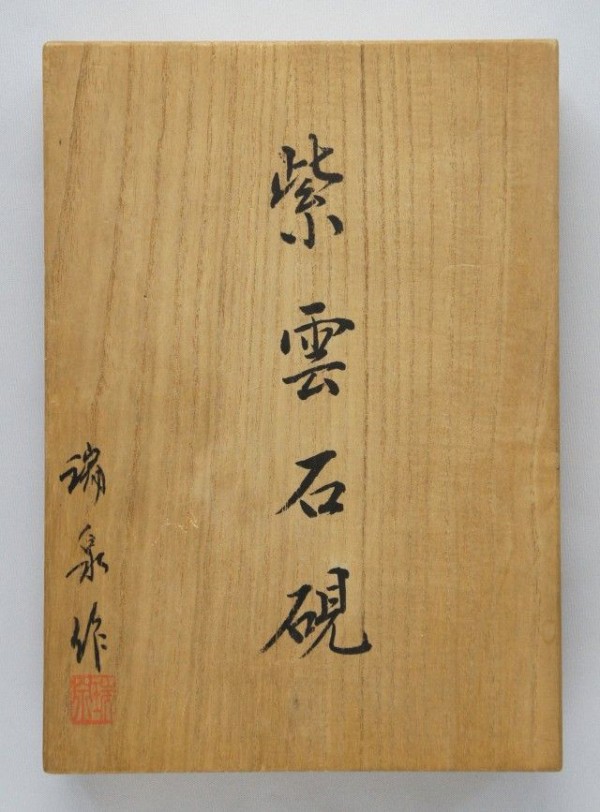 紫雲石硯
瑞泉作